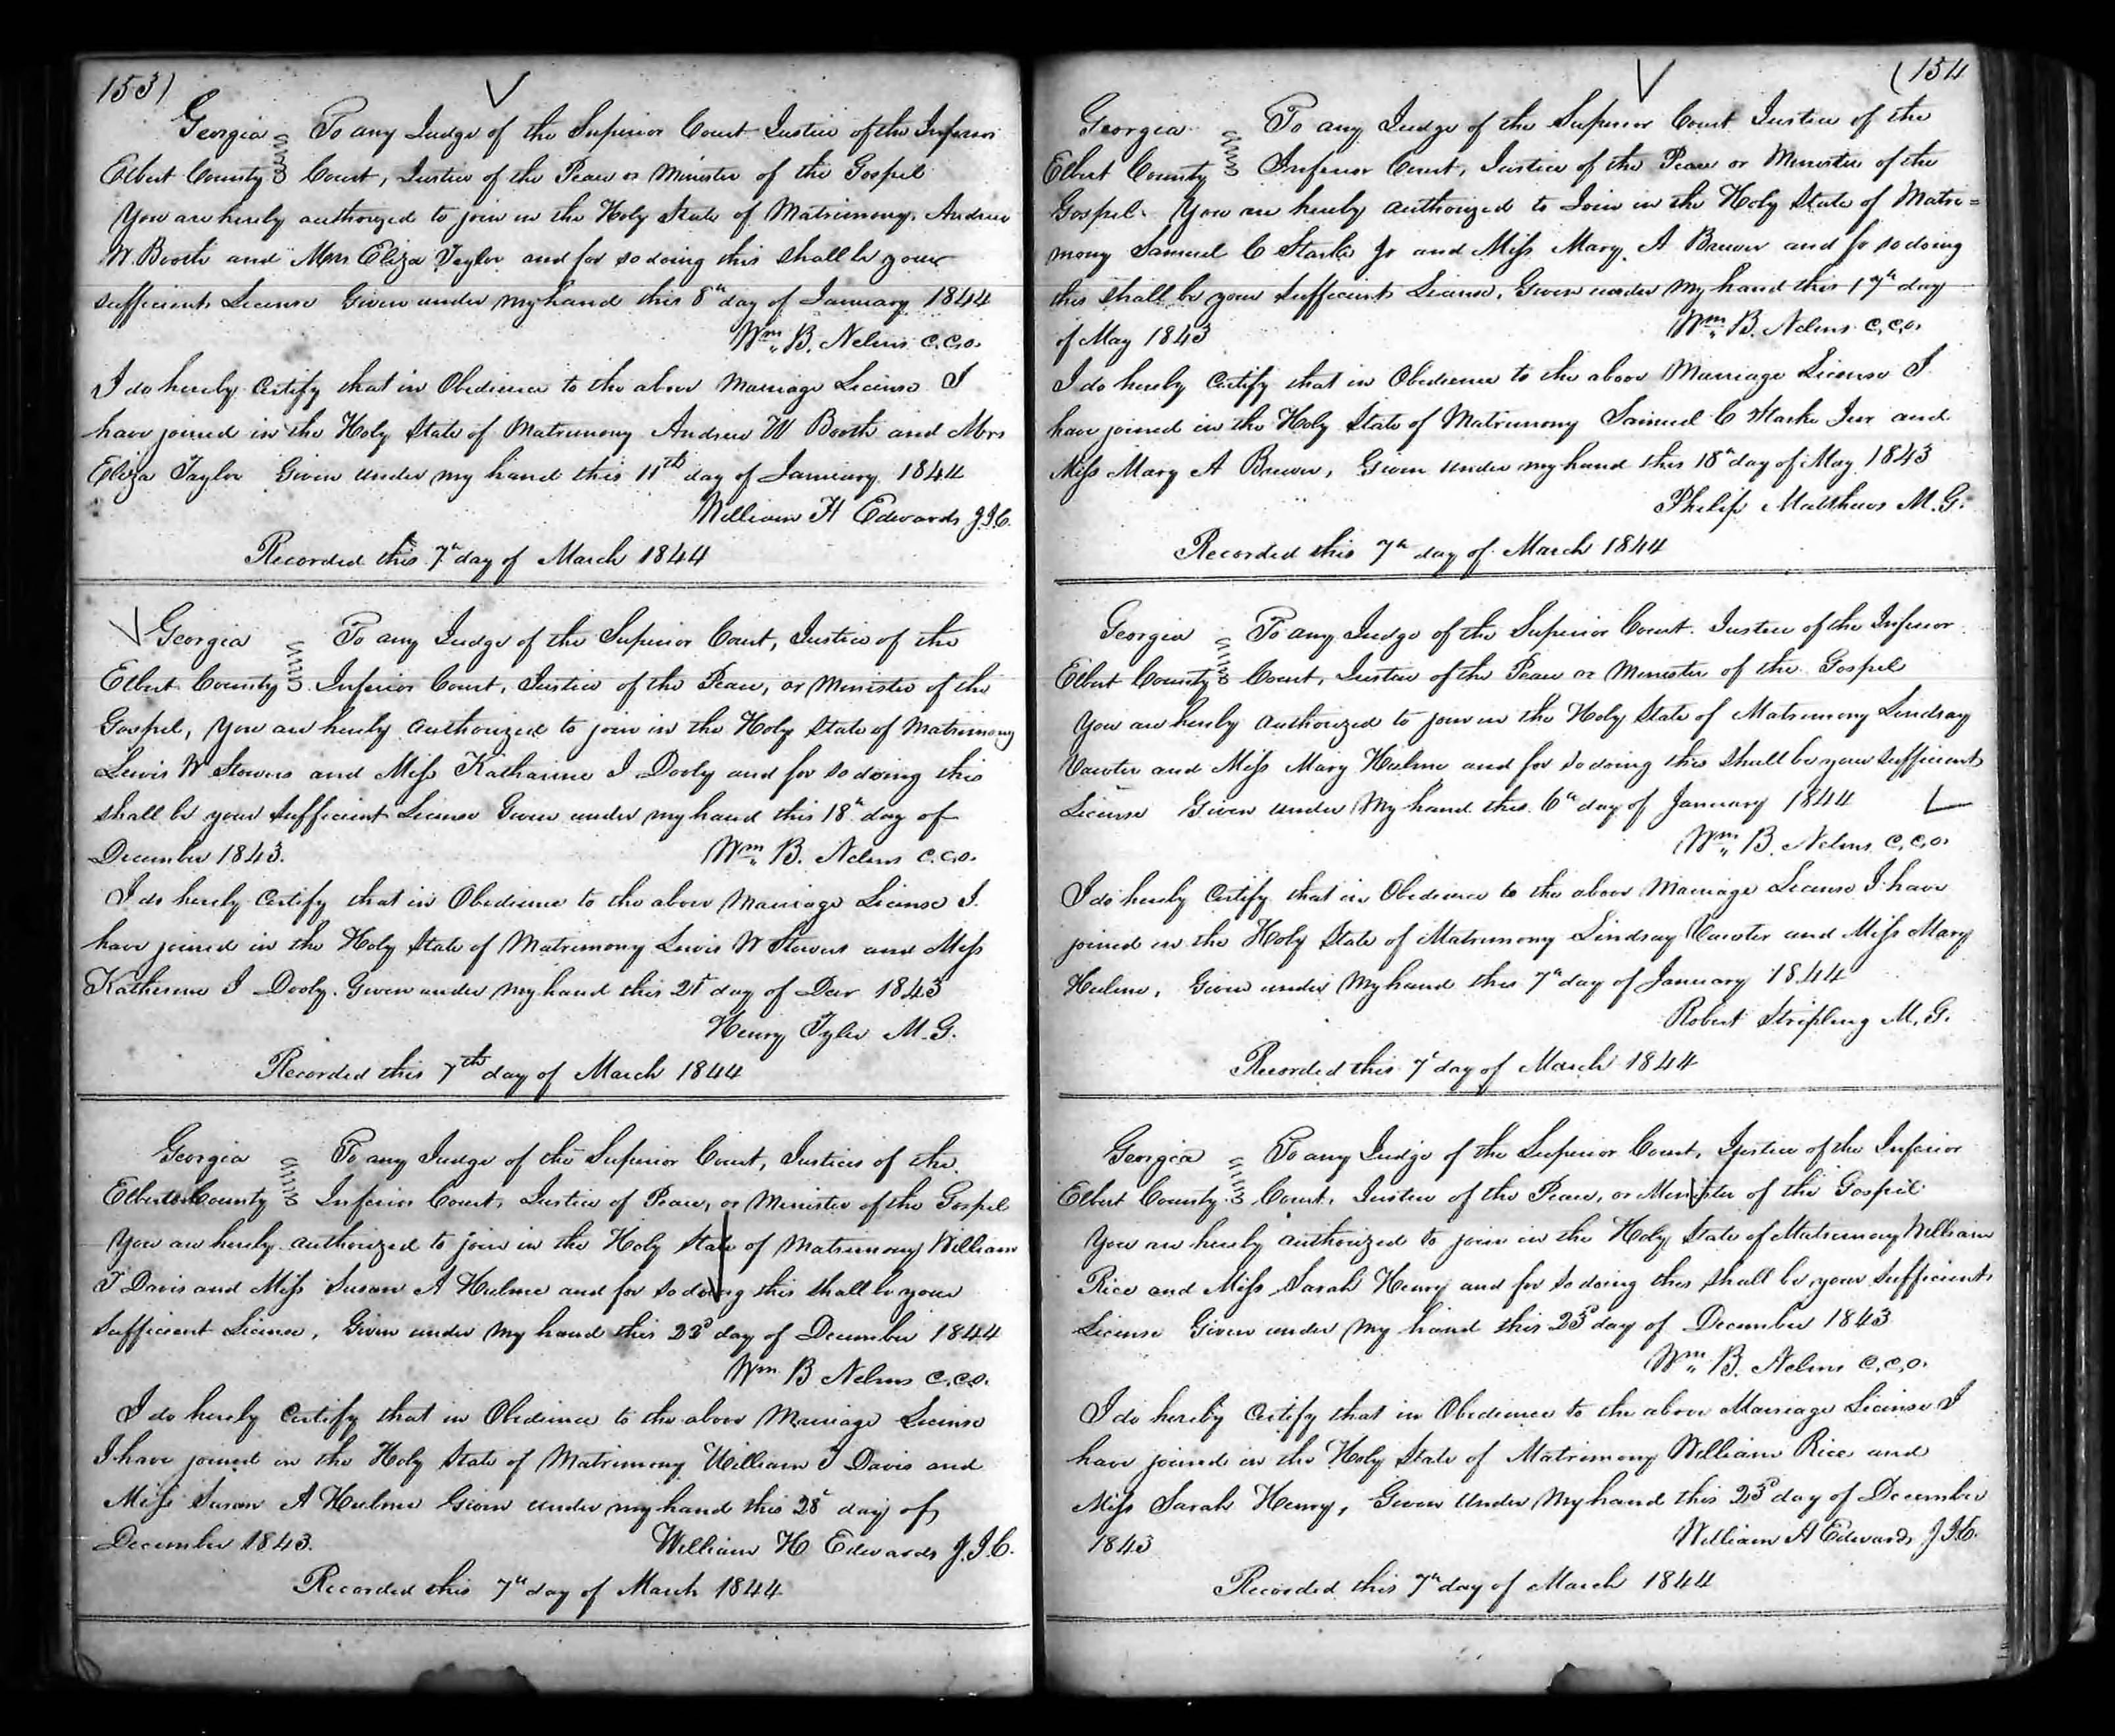 153)
Georgia To any Judge of the Superior Court Justice of the Inferior
Elbert County Court, Justice of the Peace or Minister of the Gospel
You are hereby authorized to join in the Holy State of Matrimony. Andrew
W. Booth and Mrs Eliza Taylor and for so doing this shall be your
sufficient License Given under my hand this 8th day of January 1844
Wm. B. Nelms c.c.o.
I do hereby Certify that in Obedience to the above Marriage License I
have joined in the Holy State of Matrimony Andrew W Booth and Mrs
Eliza Taylor Given under my hand this 11th day of January 1844
William H Edwards J.I.C.
Recorded this 7th day of March 1844
Georgia To any Judge of the Superior Court, Justice of the
Elbert County Inferior Court, Justice of the Peace, or Minister of the
Gospel, You are hereby authorized to join in the Holy State of Matrimony
Lewis W Stowers and Miss Katharine I Dooly and for so doing this
shall be your sufficient License Given under my hand this 18th day of
December 1843. Wm. B. Nelms c.c.o.
I do hereby Certify that in Obedience to the above Marriage License I.
have joined in the Holy State of Matrimony Lewis W Stowers and Miss
Katherine I Dooly. Given under my hand this 21t day of Decr 1843
Henry Tyler M.G.
Recorded this 7th day of March 1844
Georgia To any Judge of the Superior Court, Justices of the.
Elbert County Inferior Court, Justice of Peace, or Minister of the Gospel
You are hereby authorized to join in the Holy State of Matrimony William
T Davis and Miss Susan A Hulme and for so doing this shall be your
sufficient License, Given under my hand this 23d day of December 1844
Wm B Nelms c.c.o.
I do hereby Certify that in Obedience to the above Marriage License
I have joined in the Holy State of Matrimony William T Davis and
Miss Susan A Hulme Given under my hand this 28t day of
December 1843. William H Edwards J.I.C.
Recorded this 7th day of March 1844
(154
Georgia To any Judge of the Superior Court Justice of the
Elbert County Inferior Court, Justice of the Peace or Minister of the
Gospel. You are hereby authorized to Join in the Holy State of Matri=
mony Samuel C Starke Jr and Miss Mary A Brewer and for so doing
this shall be your sufficient License, Given under my hand this 17th day
of May 1843 Wm. B. Nelms c.c.o.
I do hereby Certify that in Obedience to the above Marriage License I
have joined in the Holy State of Matrimony Samuel C Starke Jur and
Miss Mary A Brewer, Given under my hand this 18th day of May 1843
Philip Matthews M.G.
Recorded this 7th day of March 1844
Georgia To any Judge of the Superior Court. Justice of the Inferior
Elbert County Court, Justice of the Peace or Minister of the Gospel
You are hereby authorized to join in the Holy State of Matrimony Lindsay
Vawter and Miss Mary Hulme and for so doing this shall be your sufficient
License Given under my hand this 6th day of January 1844
Wm. B. Nelms c.c.o.
I do hereby Certify that in Obedience to the above Marriage License I have
joined in the Holy State of Matrimony Lindsay Vawter and Miss Mary
Hulme, Given under my hand this 7th day of January 1844
Robert Stripling M.G.
Recorded this 7t day of March 1844
Georgia To any Judge of the Superior Court, Justice of the Inferior
Elbert County Court, Justice of the Peace, or Minister of the Gospel
You are hereby authorized to join in the Holy State of Matrimony William
Rice and Miss Sarah Henry and for so doing this shall be your sufficient
License Given under my hand this 23d day of December 1843
Wm. B. Nelms c.c.o.
I do hereby Certify that in Obedience to the above Marriage License I
have joined in the Holy State of Matrimony William Rice and
Miss Sarah Henry, Given under my hand this 23d day of December
1843 William A Edwards J.I.C.
Recorded this 7th day of March 1844